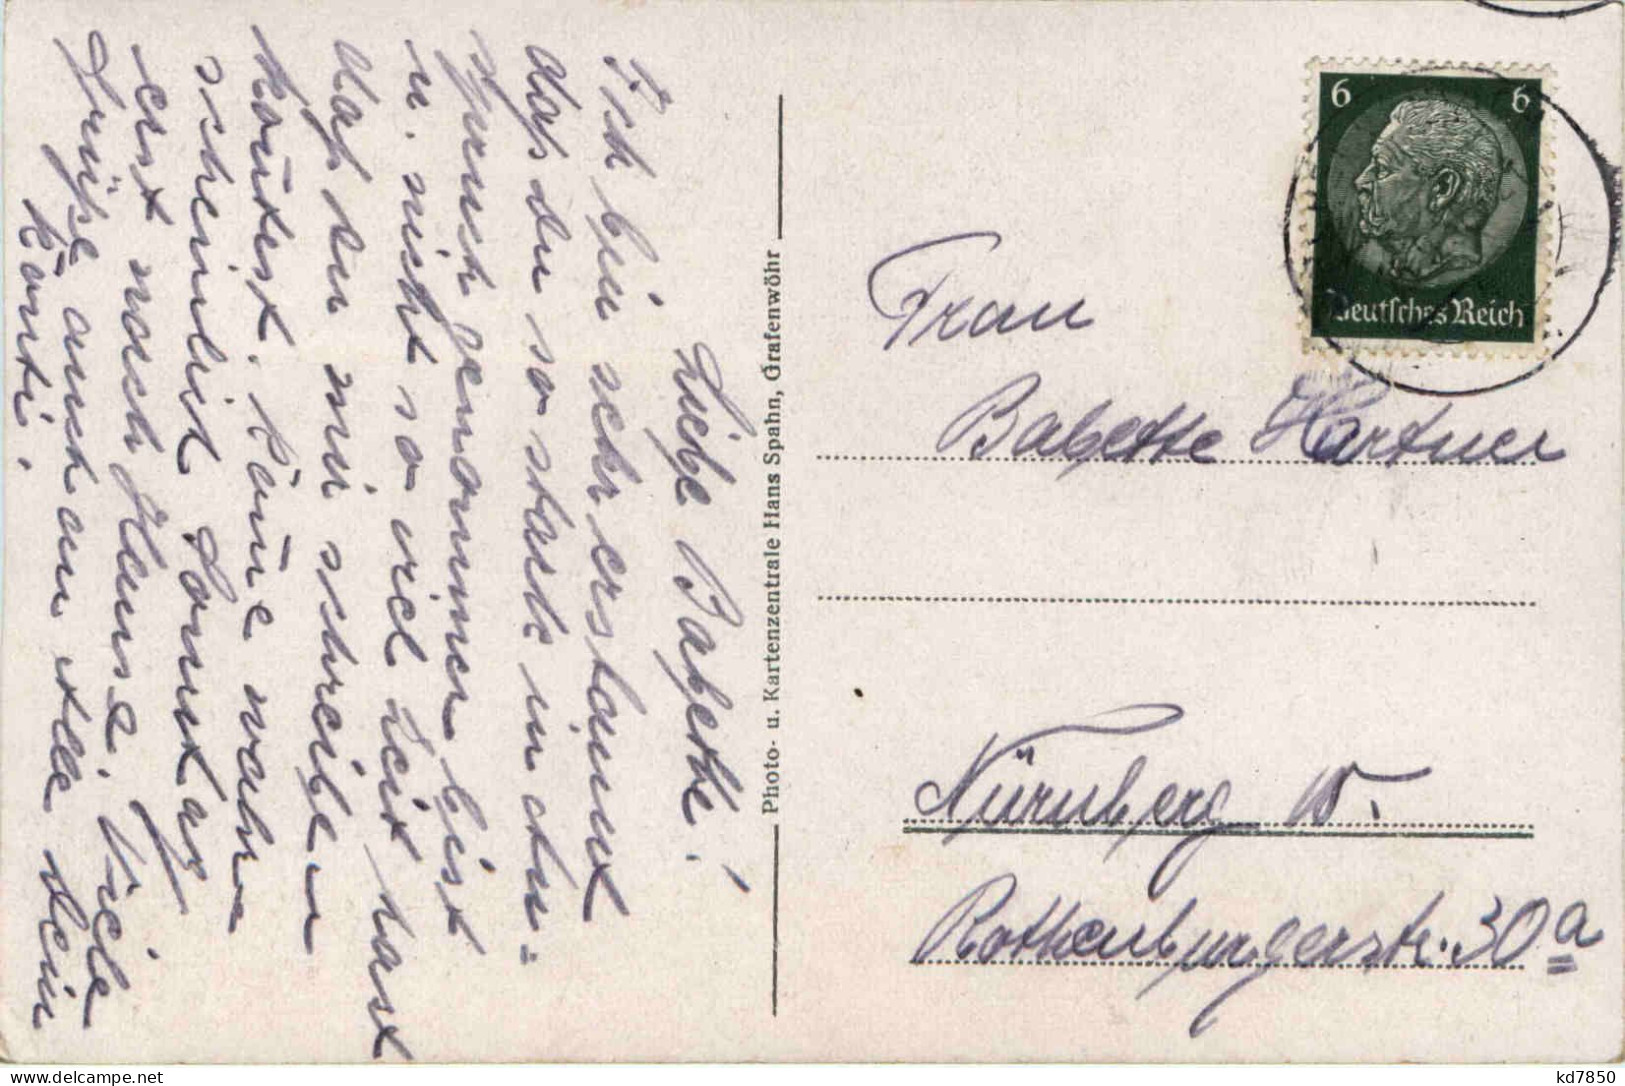 Liebe Babette!
Ich bin sehr erstaunt
daß du so stark in An-
spruch genommen bist
u. nicht so viel Zeit hast
daß du mir schreiben
könntest. Käme wahr-
scheinlich Sonntag
erst nach Hause. Viele
Grüße auch an alle Dein
Konti.
Photo- u. Kartenzentrale Hans Spahn, Grafenwöhr
6 6
Deutsches Reich
Frau
Babette Hartner
Nürnberg W.
Rothenburgerstr. 30a
kd7850